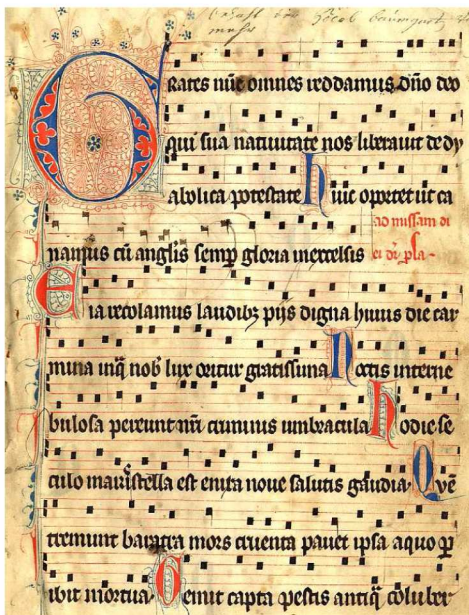 GRATES nūc omnes reddamus dn̄o deo
qui sua natiuitate nos liberauit de dy
abolica potestate huic oportet ut ca
namus cū angłis semp gloria in excelsis
ad missam di
ei dr̄ pla-
Eia recolamus laudibȝ pijs digna huius die car
mina inq̄ nob̄ lux oritur gratissima Noctis interne
bulosa pereunt nr̄i criminis umbracula Hodie se
culo maris stella est enixa noue salutis gaudia Quē
tremunt baratra mors cruenta pauet ipsa a quo p̄
ibit mortua Gemit capta pestis antiq̄ coluber